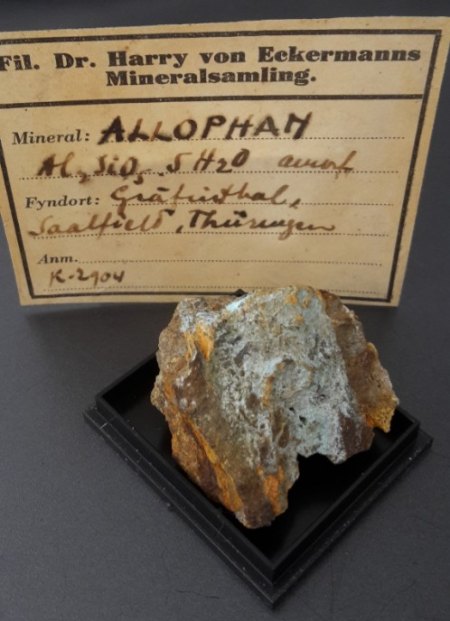 Fil. Dr. Harry von Eckermanns
Mineralsamling.
Mineral: ALLOPHAN
Al₂SiO₅ 5H₂O amorf
Fyndort: Gräfenthal,
Saalfield, Thüringen
Anm.
K-2904